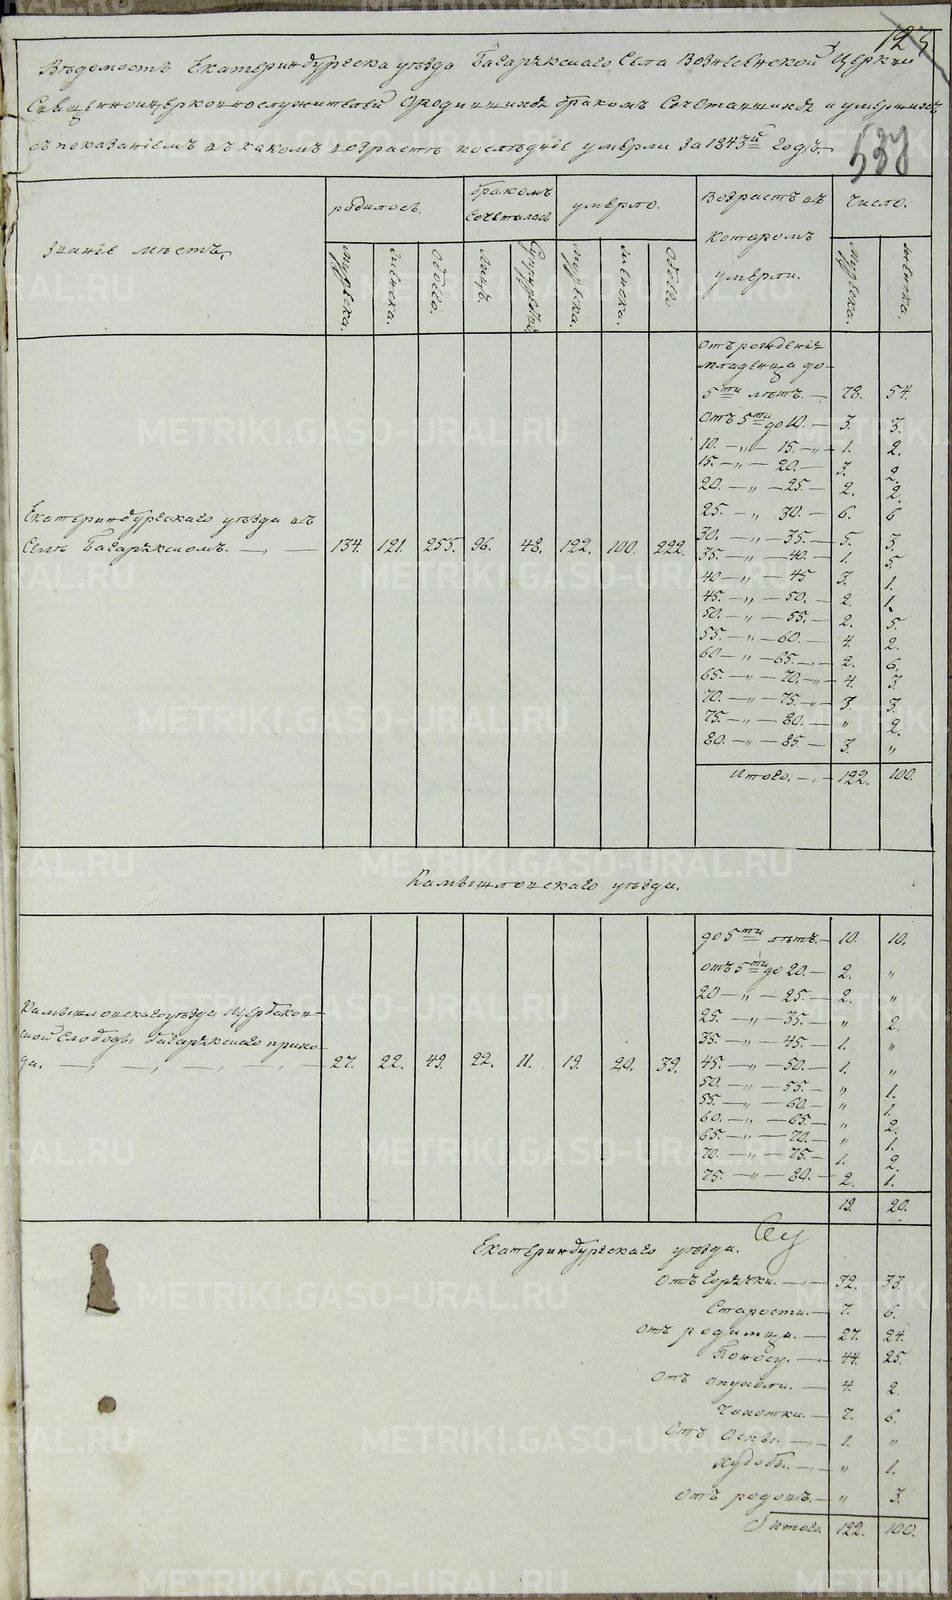 123
Вѣдомость Екатеринбургска уѣзда Багаряскаго Села Вознесенской Церкви
Священноцерковнослужителей о родившихся бракомъ Сочетавшихся и умершихъ
съ показаніемъ въ какомъ возрастѣ послѣдніе умерли За 1843й годъ.
537
Званіе мѣстъ
родилось.
бракомъ сочеталось
умерло.
Возрастъ въ котаромъ умерли.
Число.
мужеска. женска. Обоего. Лицъ. Супружествъ мужеска. женска. Обоего мужеска. женска.
Отъ рожденія
младенца до
5ти лѣтъ. — 78. 54.
Отъ 5ти до 10. — 3. 3.
10. — „ — 15. — „ — 1. 2.
15. — „ — 20. — 3. 2.
20. — „ — 25. — 2. 2.
25. — „ 30. — 6. 6
Екатеринбургскаго уѣзда въ
Селѣ Багаряскомъ. — „ — 134. 121. 255. 96. 48. 122. 100. 222.
30. — „ — 35. — 5. 3.
35. — „ — 40. — 1. 5.
40 — „ — 45 3. 1.
45. — „ — 50. — 2. 1.
50. — „ — 55. — 2. 5.
55. — „ — 60. — 4. 2.
60 — „ — 65. — 2. 6.
65. — „ — 70. — „ — 4. 3.
70. — „ — 75. — „ — 3. 3.
75. — „ — 80. — „ 2.
80. — „ — 85. — 3. „
Итого. — 122. 100.
Камышловскаго уѣзда.
до 5ти лѣтъ. — 10. 10.
отъ 5ти до 20. — 2. „
20 — „ — 25. — 2. „
25. — „ — 35. — „ 2.
35. — „ — 45. — 1. „
Камышловскаго уѣзда Щербаков-
ской Слободы Багаряскаго прихо-
да. — 27. 22. 49. 22. 11. 19. 20. 39.
45. — „ — 50. — 1. „
50. — „ — 55. — „ 1.
55. — „ — 60. — „ 1.
60. — „ — 65. — „ 2.
65. — „ — 70. — „ 1.
70. — „ — 75. — 1. 2.
75. — „ — 80. — 2. 1.
19. 20.
Екатеринбургскаго уѣзда.
Отъ Горячки. — 32. 33.
Старости. — 7. 6.
отъ родимца. — 27. 24.
Поносу. — 44. 25.
Отъ опухоли. — 4. 2.
Чахотки. — 7. 6.
Отъ Оспы. — 1. „
худобы. — „ 1.
Отъ родовъ. — „ 3.
Итого. 122. 100.
METRIKI.GASO-URAL.RU